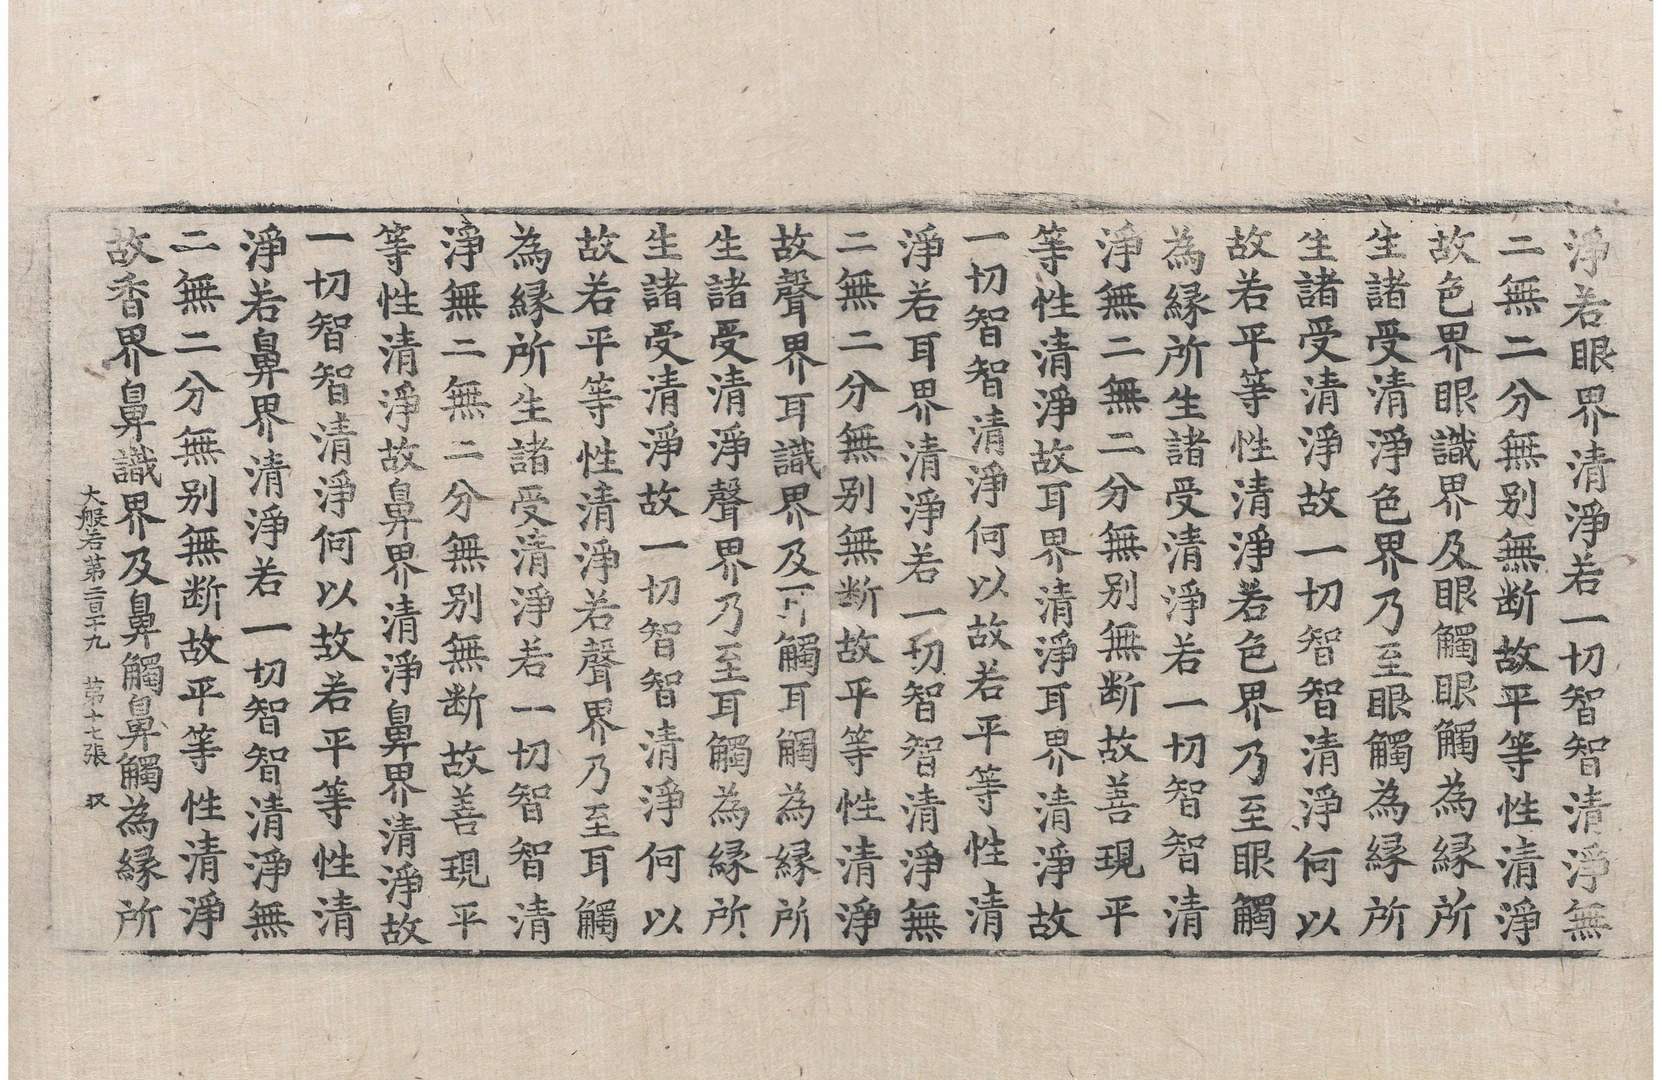 淨若眼界清淨若一切智智清淨無
二無二分無别無断故平等性清淨
故色界眼識界及眼觸眼觸為縁所
生諸受清淨色界乃至眼觸為縁所
生諸受清淨故一切智智清淨何以
故若平等性清淨若色界乃至眼觸
為縁所生諸受清淨若一切智智清
淨無二無二分無别無断故善現平
等性清淨故耳界清淨耳界清淨故
一切智智清淨何以故若平等性清
淨若耳界清淨若一切智智清淨無
二無二分無别無断故平等性清淨
故聲界耳識界及耳觸耳觸為縁所
生諸受清淨聲界乃至耳觸為縁所
生諸受清淨故一切智智清淨何以
故若平等性清淨若聲界乃至耳觸
為縁所生諸受清淨若一切智智清
淨無二無二分無别無断故善現平
等性清淨故鼻界清淨鼻界清淨故
一切智智清淨何以故若平等性清
淨若鼻界清淨若一切智智清淨無
二無二分無别無断故平等性清淨
故香界鼻識界及鼻觸鼻觸為縁所
大般若第二百十九　第十七張　収